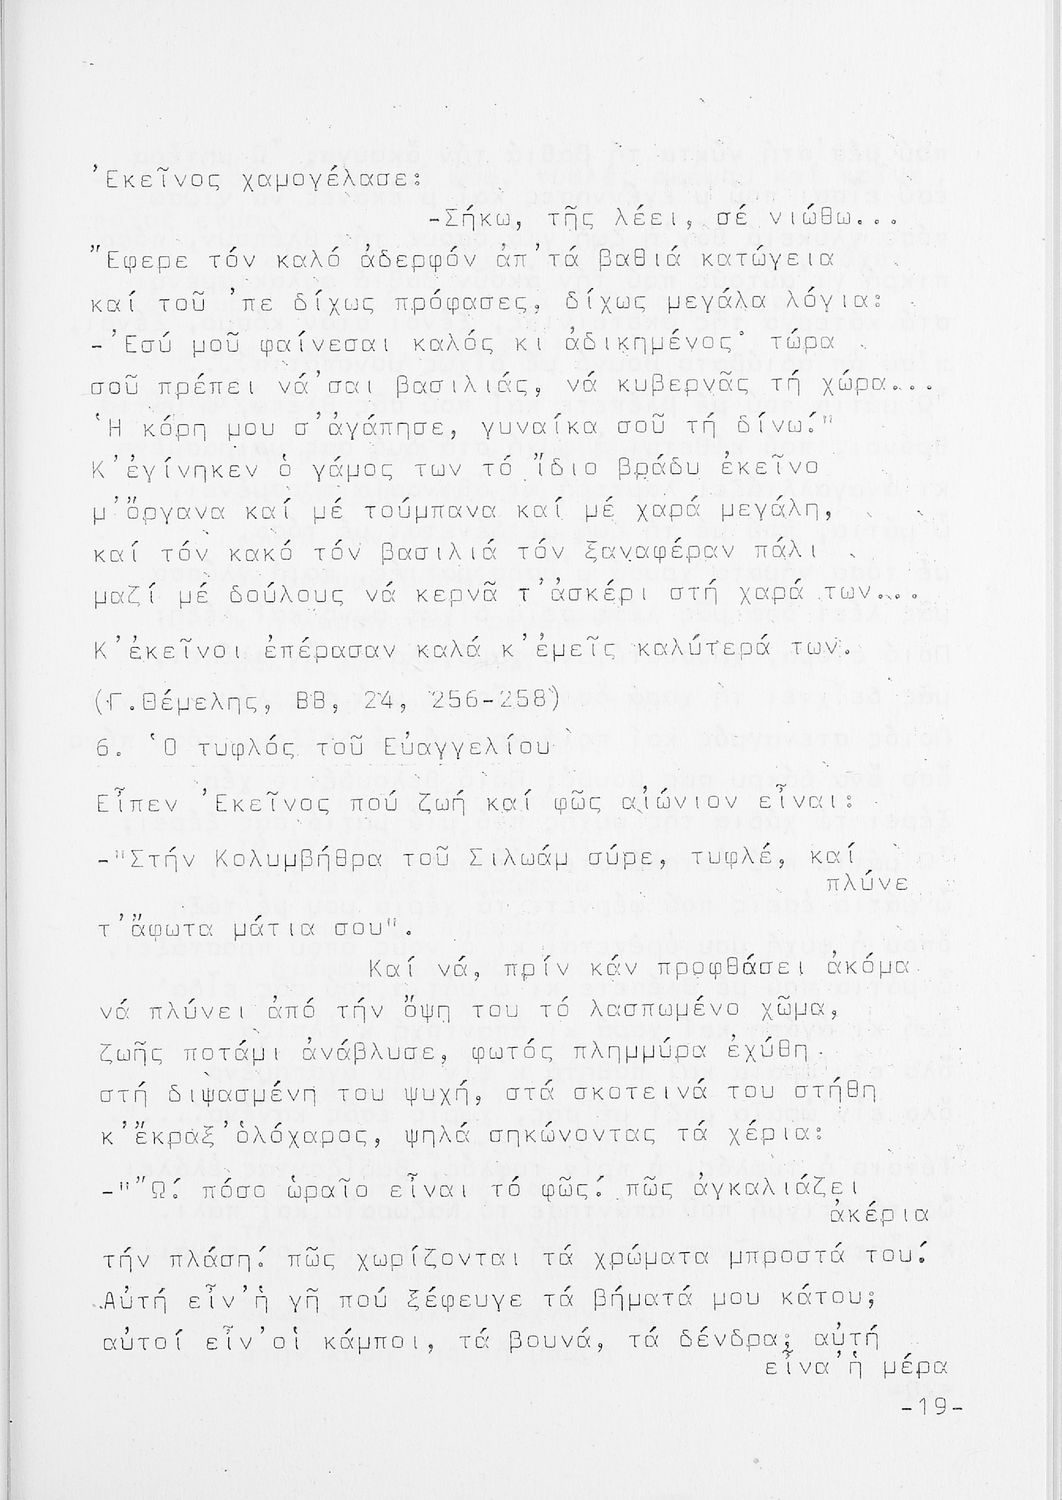 Ἐκεῖνος χαμογέλασε:
-Σήκω, τῆς λέει, σέ νιώθω...
Ἔφερε τόν καλό ἀδερφόν ἀπ'τά βαθιά κατώγεια
καί τοῦ 'πε δίχως πρόφασες, δίχως μεγάλα λόγια:
-Ἐσύ μοῦ φαίνεσαι καλός κι ἀδικημένος· τώρα
σοῦ πρέπει νά'σαι βασιλιάς, νά κυβερνᾶς τή χώρα...
Ἡ κόρη μου σ'ἀγάπησε, γυναίκα σοῦ τή δίνω!"
Κ'ἐγίνηκεν ὁ γάμος των τό ἴδιο βράδυ ἐκεῖνο
μ'ὄργανα καί μέ τούμπανα καί μέ χαρά μεγάλη,
καί τόν κακό τόν βασιλιά τόν ξαναφέραν πάλι
μαζί μέ δούλους νά κερνᾶ τ'ἀσκέρι στή χαρά των...
Κ'ἐκεῖνοι ἐπέρασαν καλά κ'ἐμεῖς καλύτερά των.
(Γ.Θέμελης, ΒΒ, 24, 256-258)
6. Ὁ τυφλός τοῦ Εὐαγγελίου
Εἶπεν Ἐκεῖνος πού ζωή καί φῶς αἰώνιον εἶναι:
-"Στήν Κολυμβήθρα τοῦ Σιλωάμ σύρε, τυφλέ, καί
πλύνε
τ'ἄφωτα μάτια σου".
Καί νά, πρίν κάν προφθάσει ἀκόμα
νά πλύνει ἀπό τήν ὄψη του τό λασπωμένο χῶμα,
ζωῆς ποτάμι ἀνάβλυσε, φωτός πλημμύρα ἐχύθη
στή διψασμένη του ψυχή, στά σκοτεινά του στήθη
κ'ἔκραξ'ὁλόχαρος, ψηλά σηκώνοντας τά χέρια:
-"Ὤ! πόσο ὡραῖο εἶναι τό φῶς! πῶς ἀγκαλιάζει
ἀκέρια
τήν πλάση! πῶς χωρίζονται τά χρώματα μπροστά του!
Αὐτή εἶν'ἡ γῆ πού ξέφευγε τά βήματά μου κάτου;
αὐτοί εἶν'οἱ κάμποι, τά βουνά, τά δένδρα; αὐτή
εἶνα'ἡ μέρα
-19-